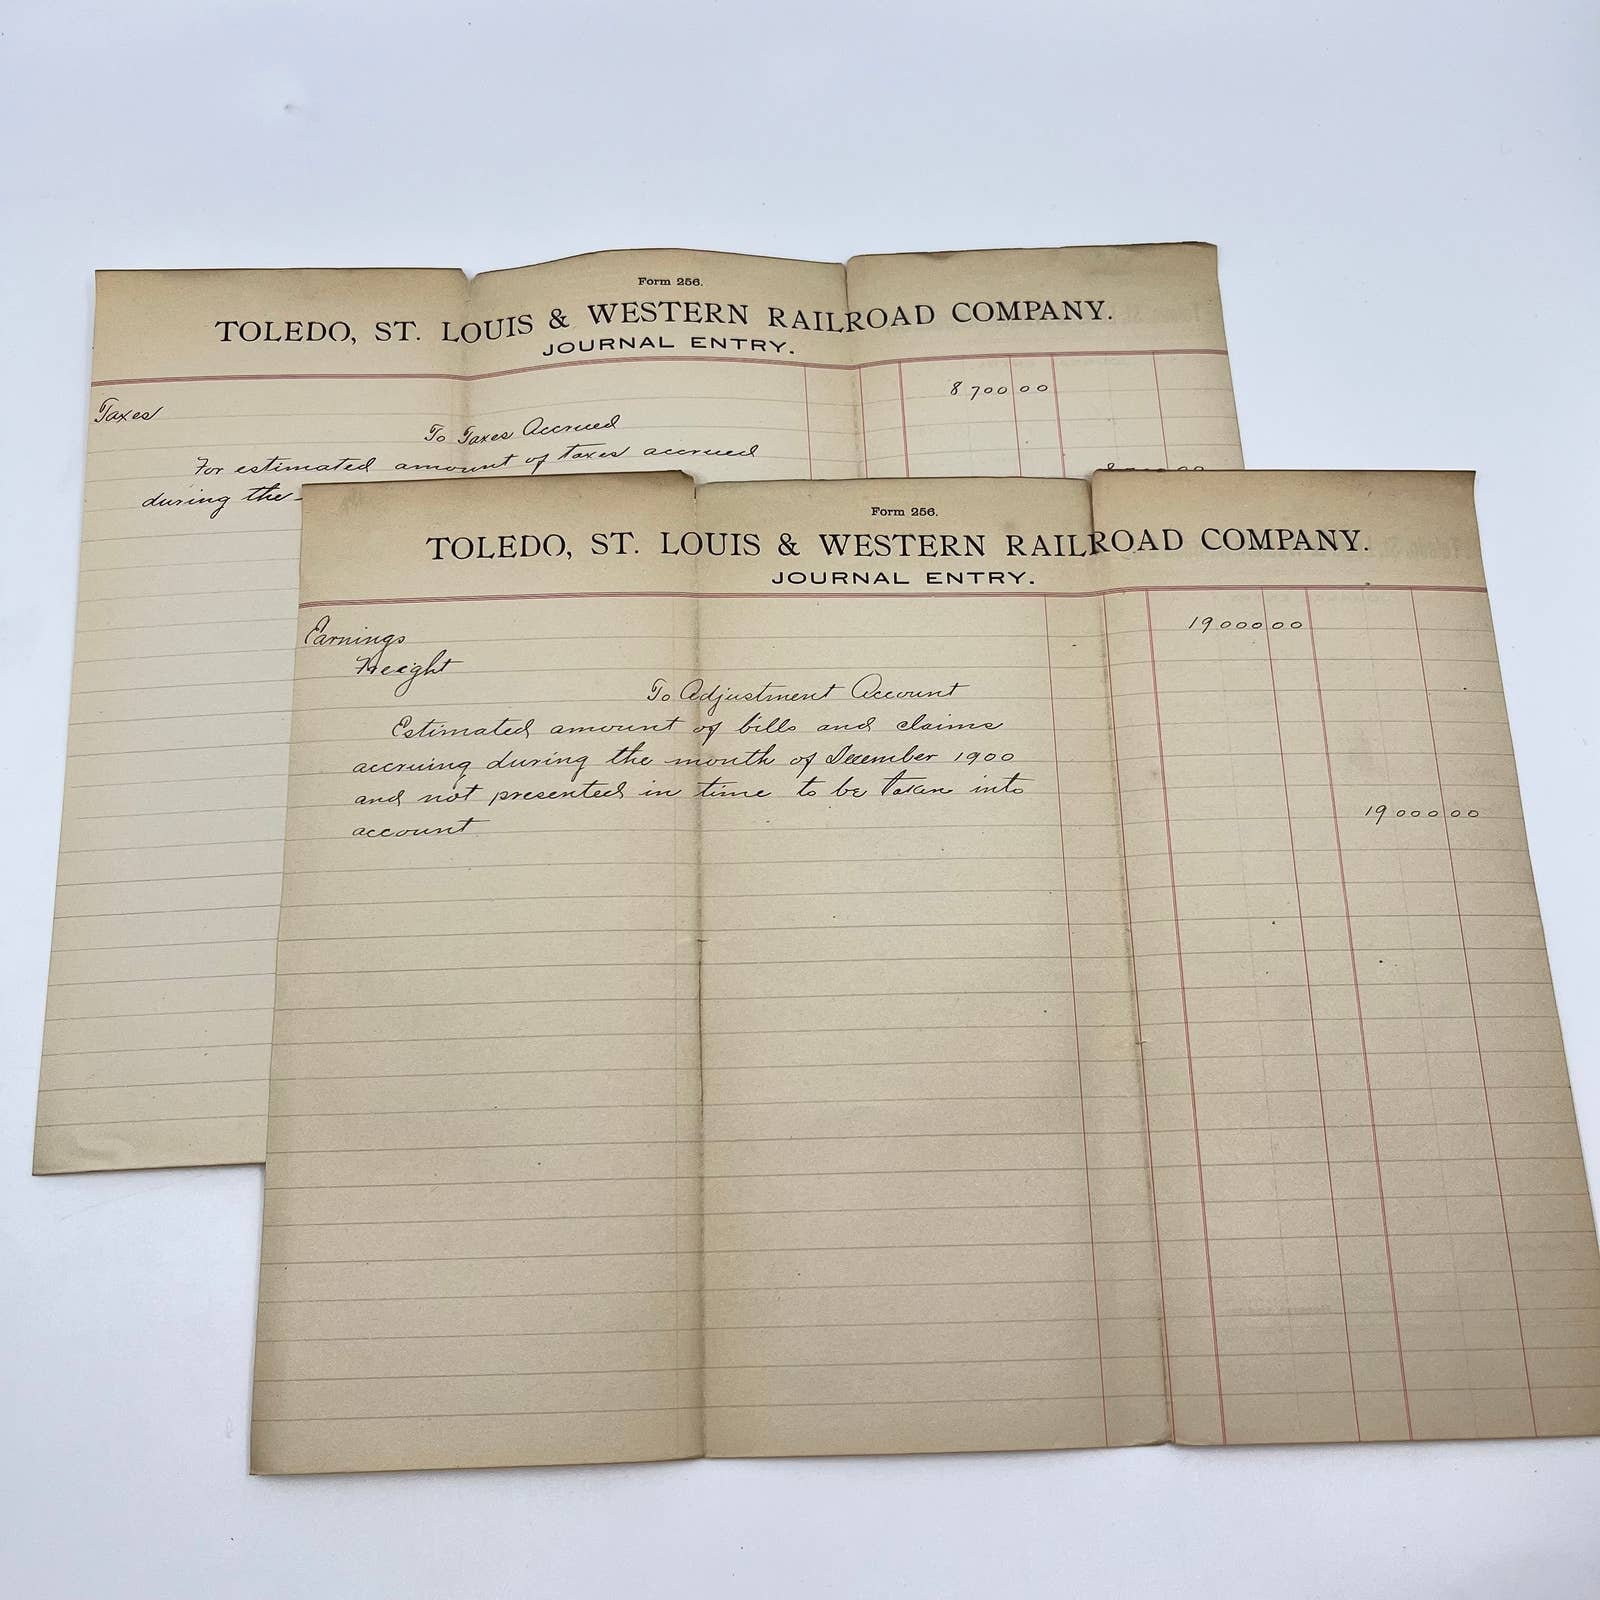 Form 256.
TOLEDO, ST. LOUIS & WESTERN RAILROAD COMPANY.
JOURNAL ENTRY.
8 700 00
Taxes
To Taxes Accrued
For estimated amount of taxes accrued
during the
Form 256.
TOLEDO, ST. LOUIS & WESTERN RAILROAD COMPANY.
JOURNAL ENTRY.
Earnings 19 000 00
Freight
To Adjustment Account
Estimated amount of bills and claims
accruing during the month of December 1900
and not presented in time to be taken into
account 19 000 00